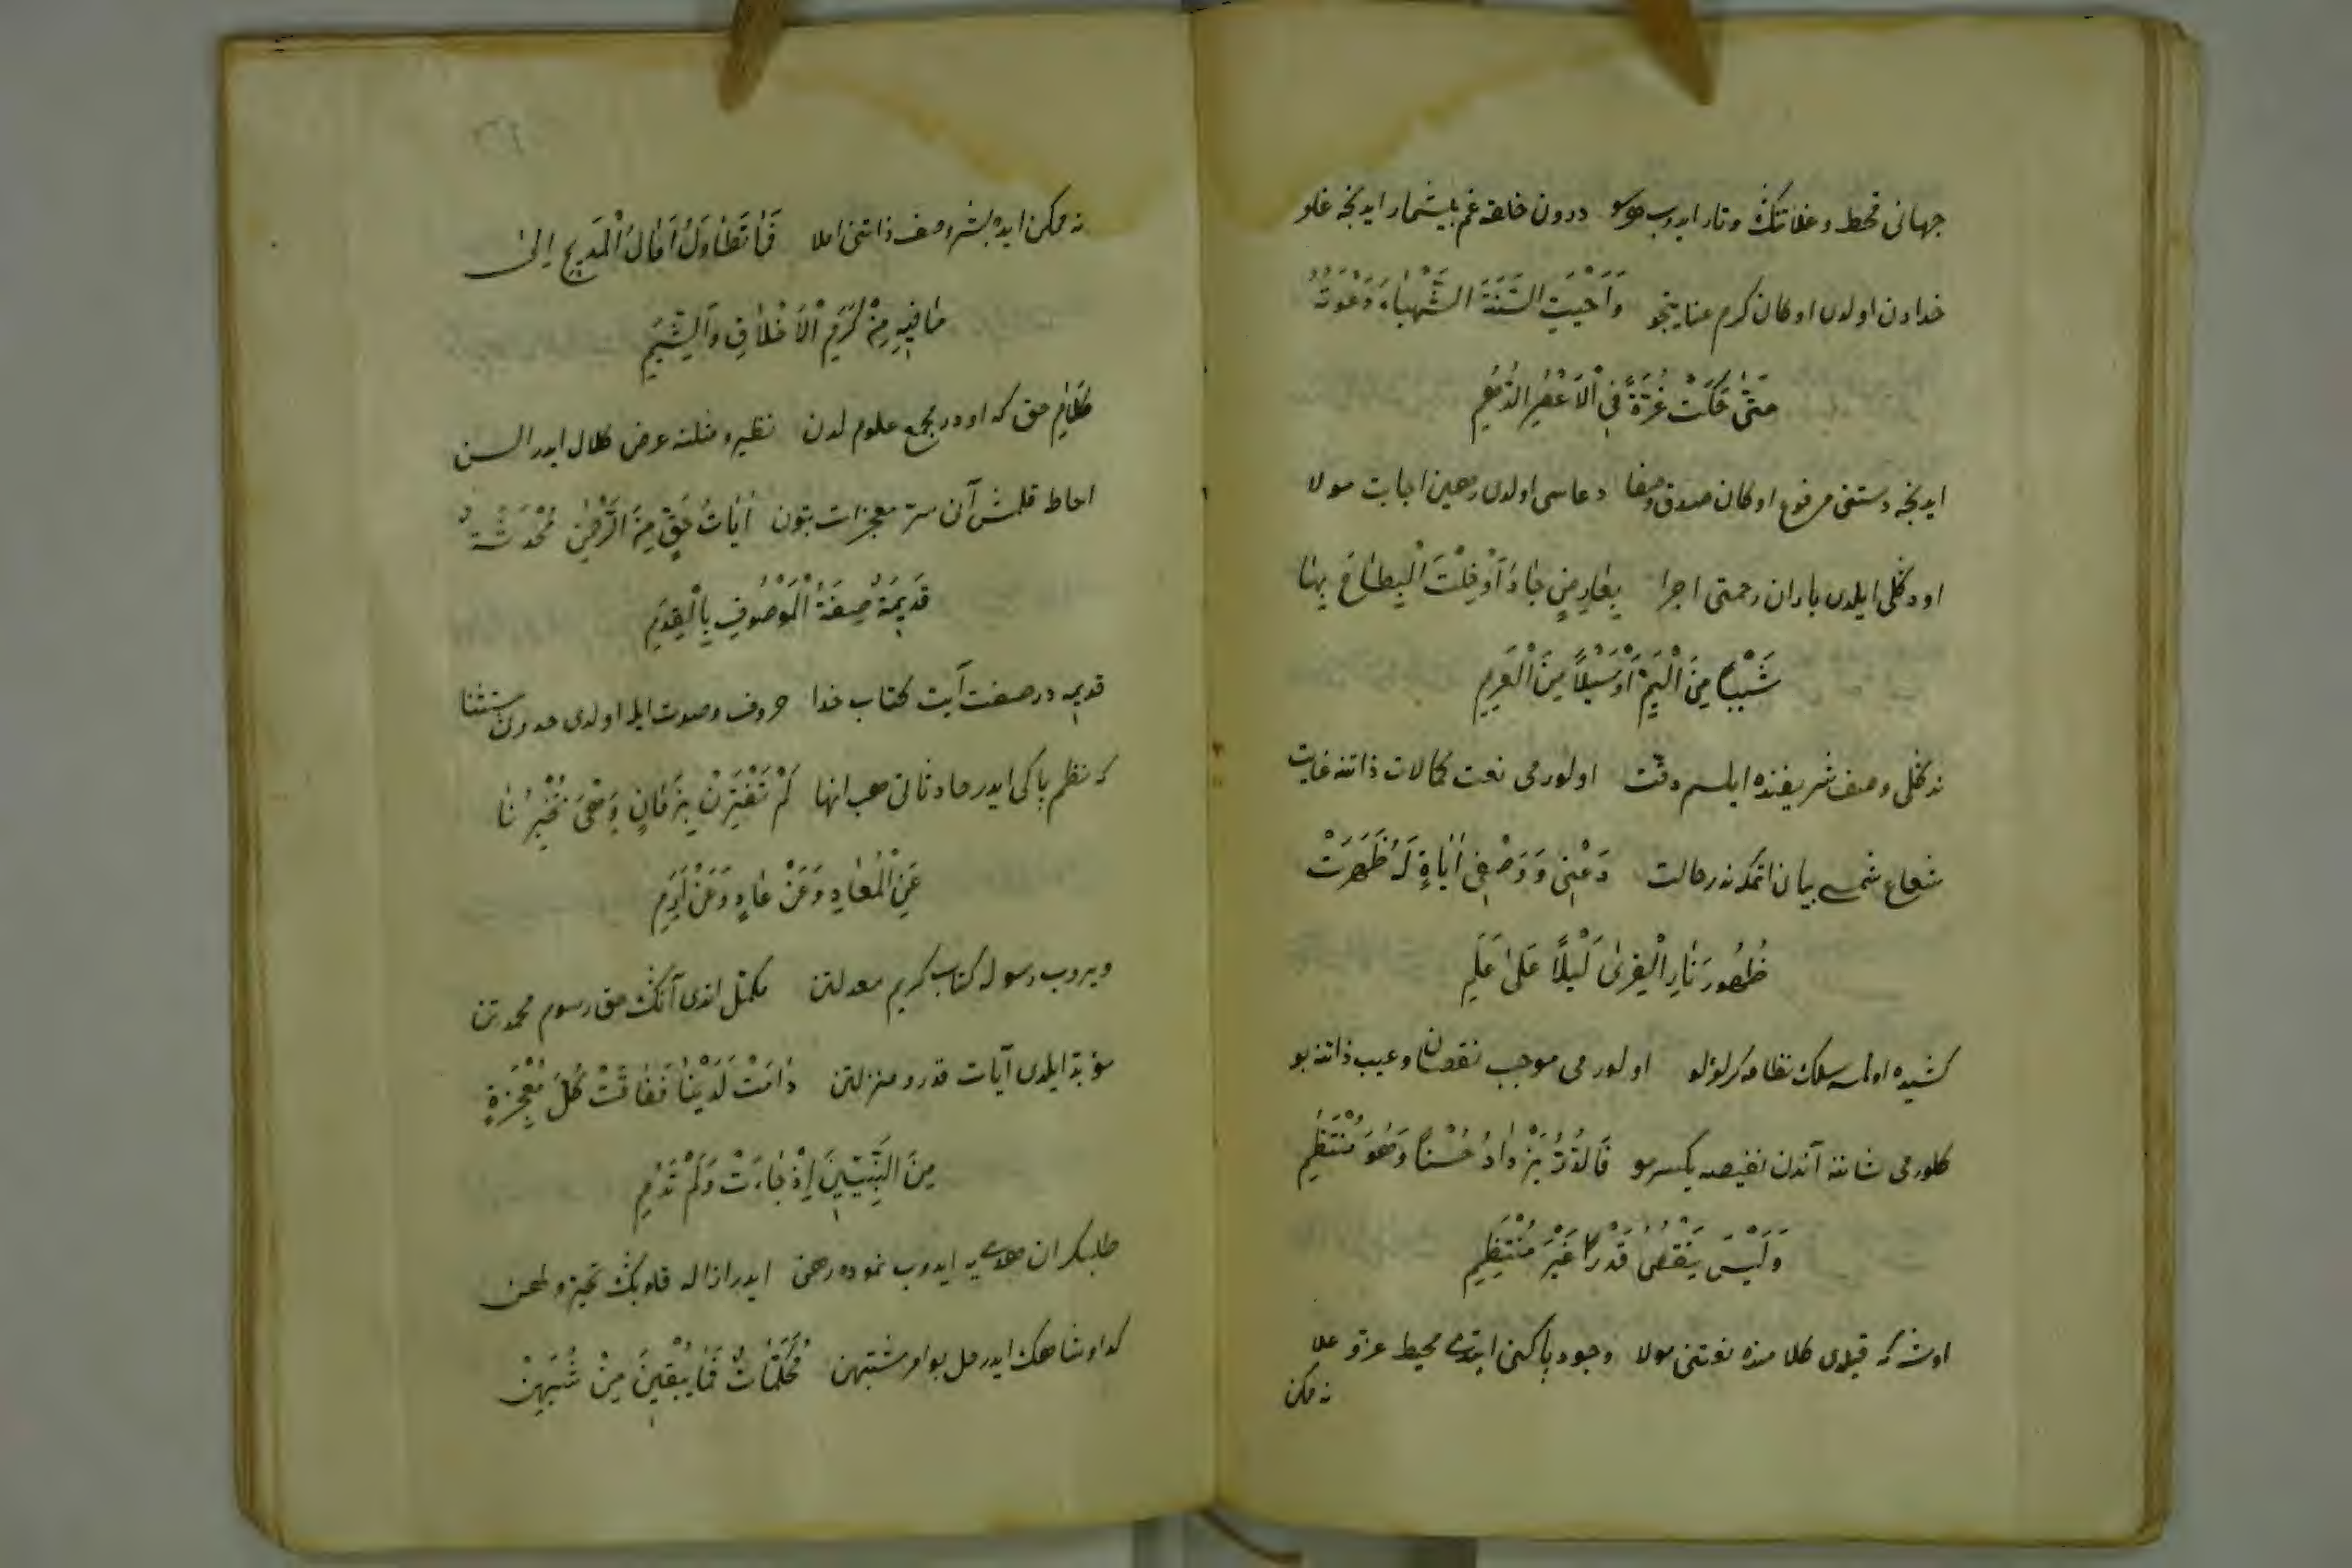 جهانی قحط و غلانك و تار ایدوب هوسو درون خلقه غم بیشمار ایدنجه غلو
خدادن اولدی او كان كرم عنایتجو وَاَحْيَتِ السَّنَةَ الشَّهْبَاءَ دَعْوَتُهُ
حَتّٰى حَكَتْ غُرَّةً فِي الْاَعْصُرِ الدُّهُمِ
ایدنجه دستنی مرفوع او كان صدق و صفا دعاسی اولدی رهین اجابت مولا
او دكلی ایلدی باران رحمتی اجرا بِعَارِضٍ جَادَ اَوْ خِلْتَ الْبِطَاحَ بِهَا
سَيْبًا مِنَ الْيَمِّ اَوْ سَيْلًا مِنَ الْعَرِمِ
نه دكلی وصف شریفنده ایلسم دقت اولورمی نعت كمالات ذاتنه غایت
شعاع شمسی بیان اتمك نه در حالت دَعْنِي وَوَصْفِي اٰيَاتٍ لَهُ ظَهَرَتْ
ظُهُورَ نَارِ الْقِرٰى لَيْلًا عَلٰى عَلَمِ
كشیده اولمسه سلك نظامه كر لؤلؤ اولورمی موجب نقصان و عیب ذاتنه بو
كلورمی شاننه آندن نقیصه یكسر مو فَالدُّرُّ يَزْدَادُ حُسْنًا وَهُوَ مُنْتَظِمٌ
وَلَيْسَ يَنْقُصُ قَدْرًا غَيْرَ مُنْتَظِمِ
اوشه كه قیلدی كلامنده نعتنی مولا وجود پاكنی ایتدی محیط عز و علا
نه ممكن
نه ممكن ایده بشر وصف ذاتنی املا فَمَا تَطَاوَلُ اٰمَالُ الْمَدِيحِ اِلٰى
مَا فِيهِ مِنْ كَرَمِ الْاَخْلَاقِ وَالشِّيَمِ
كلام حق كه او در مجمع علوم لدن نظیر و مثلنه عرض كلال ایدر السن
احاطه قلمش آن سر معجزات بتون اٰيَاتُ حَقٍّ مِنَ الرَّحْمٰنِ مُحْدَثَةٌ
قَدِيمَةٌ صِفَةُ الْمَوْصُوفِ بِالْقِدَمِ
قدیمه در صفت آیت كتاب خدا حروف و صوت ایله اولدی حدوث استثنا
كه نظم پاكی ایدر حادثاتی هب انها لَمْ تَقْتَرِنْ بِزَمَانٍ وَهْيَ تُخْبِرُنَا
عَنِ الْمَعَادِ وَعَنْ عَادٍ وَعَنْ اِرَمِ
ویروب رسوله كتاب كریم معدلتن مكمل اندی آنك حق رسوم محمدتن
مؤبد ایلدی آیات قدر و منزلتن دَامَتْ لَدَيْنَا فَفَاقَتْ كُلَّ مُعْجِزَةٍ
مِنَ النَّبِيِّينَ اِذْ جَاءَتْ وَلَمْ تَدُمِ
طلبكران هدی‌یه ایدوب نموده رهن ایدر ازاله قلوبك تحیر و طعن
كدا و شاهك ایدر حل بو امر مشتبهن مُحَكَّمَاتٌ فَمَا يُبْقِينَ مِنْ شُبَهٍ